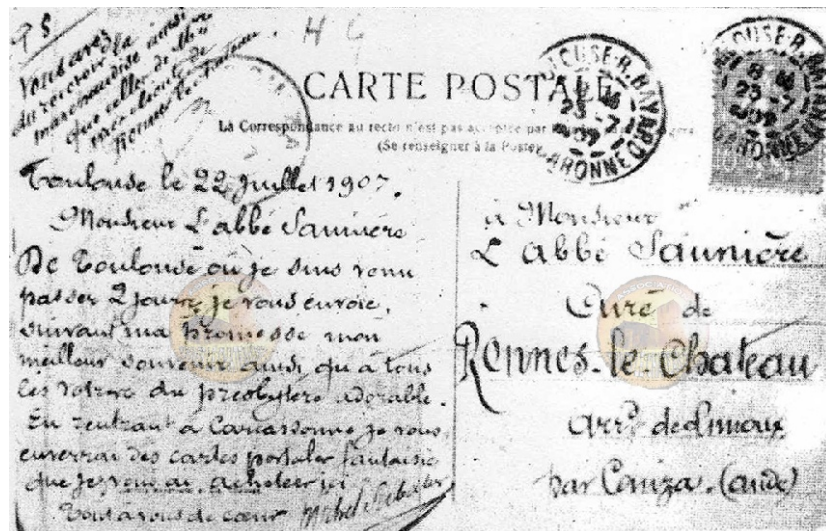 PS
Vous avez
dû recevoir la
marchandise ainsi
que celle de Mlle
H C
CARTE POSTALE
La Correspondance au recto n'est pas acceptée par
(Se renseigner à la Poste)
TOULOUSE-R. BAYARD
23-7
GARONNE
Toulouse le 22 Juillet 1907.
Monsieur L'abbé Saunière
De Toulouse où je suis venu
passer 2 jours, je vous envoie,
suivant ma promesse mon
meilleur souvenir ainsi qu'à tous
les votres du presbytère adorable.
En rentrant à Carcassonne je vous
enverrai des cartes postales fantaisie
que je vous ai achetées ici
Tout à vous de cœur
à Monsieur
L'abbé Saunière
Curé de
Rennes-le-Chateau
Arrt de Limoux
par Couiza. (Aude)